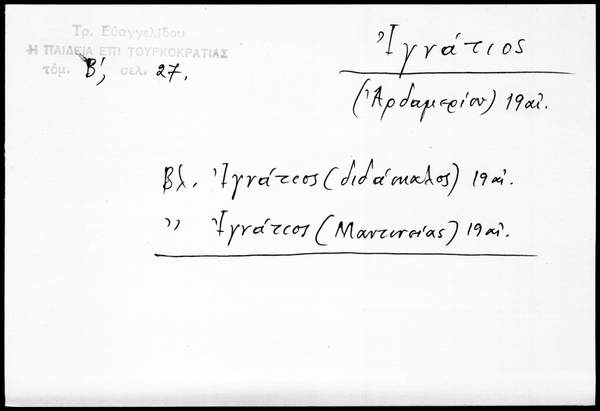 Τρ. Εὐαγγελίδου
Ἡ ΠΑΙΔΕΙΑ ΕΠΙ ΤΟΥΡΚΟΚΡΑΤΙΑΣ
τόμ. Β΄, σελ. 27.
Ἰγνάτιος
(Ἀρδαμερίου) 19 αἰ.
Βλ. Ἰγνάτιος (διδάσκαλος) 19 αἰ.
〃 Ἰγνάτιος (Μαντινείας) 19 αἰ.